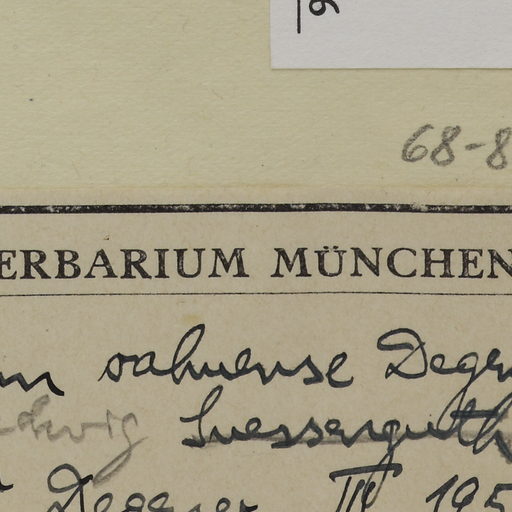 68-8
ERBARIUM MÜNCHEN
oahuense Degen
dwig Suessenguth
Degener III 195